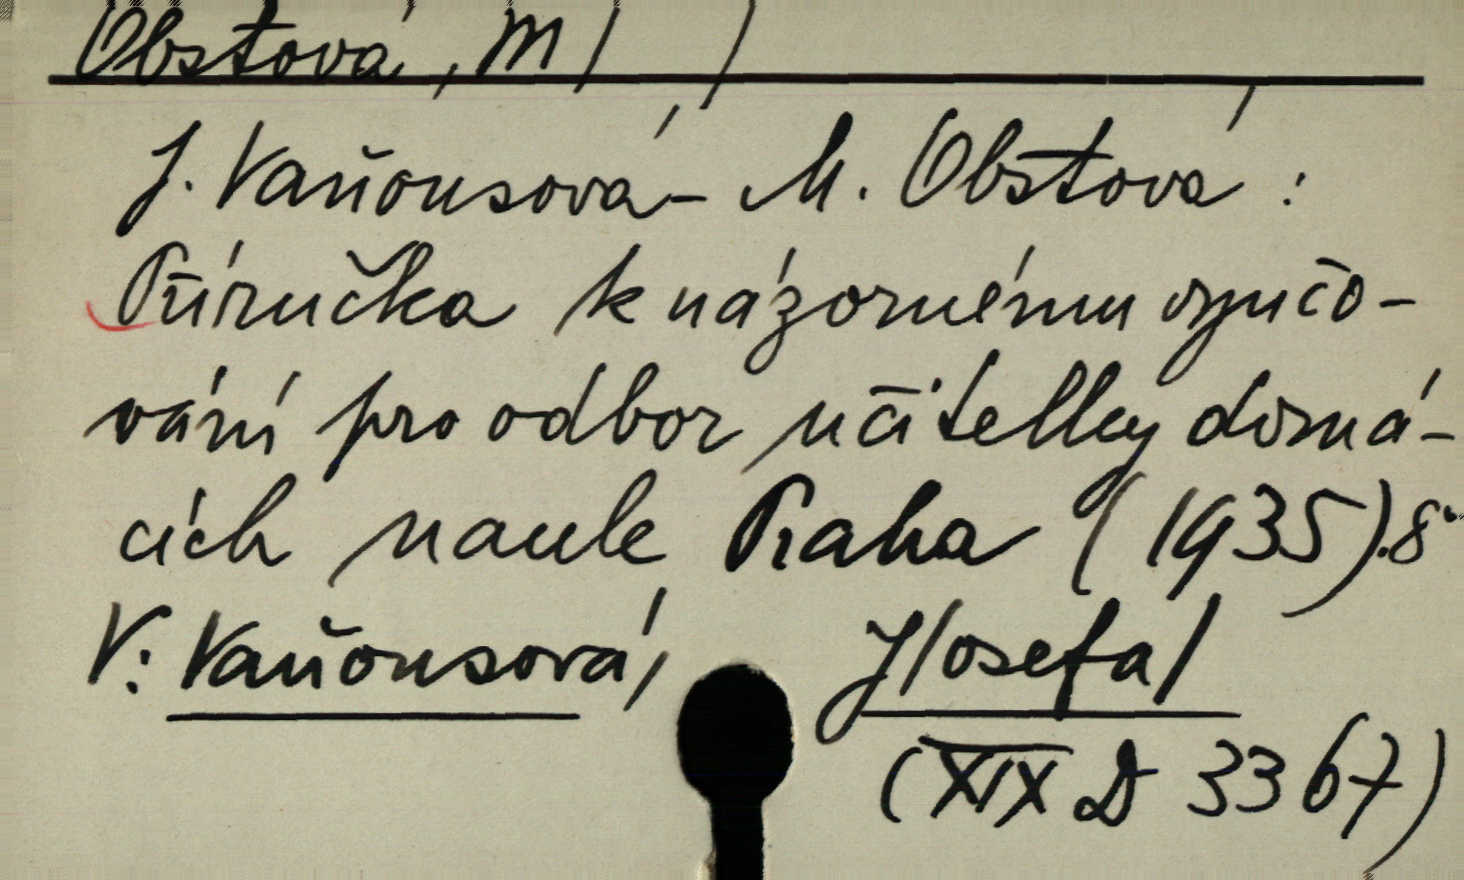 Obstová, M/ /
J. Vaňousová - M. Obstová :
Příručka k názornému vyučo-
vání pro odbor učitelky domá-
cích nauk Praha (1935). 8°
V: Vaňousová, J/osefa/
(XIX D 3367)